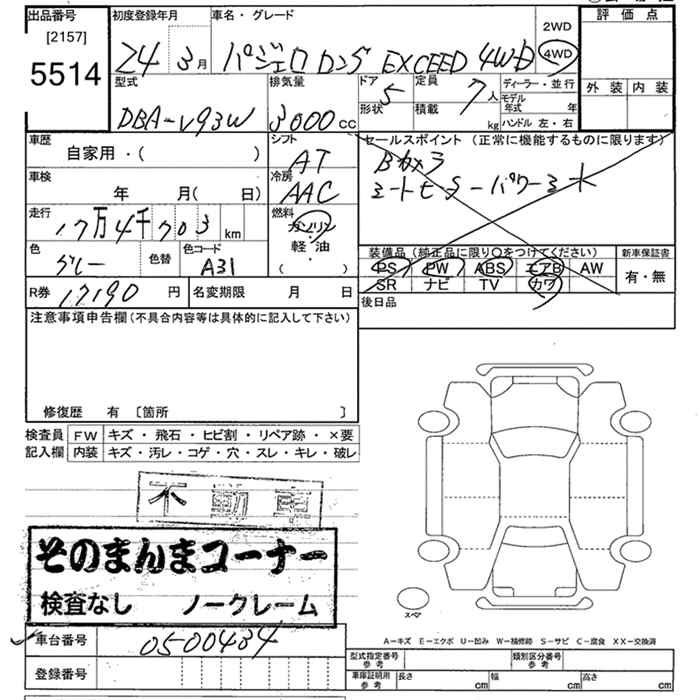 出品番号 初度登録年月 車名・グレード 2WD 評価点
[2157]
5514 24 3月 パジェロ ロング EXCEED 4WD 4WD
型式 排気量 ドア 定員 ディーラー・並行 外装 内装
DBA-V93W 3000CC 5 7人 モデル年式 年
形状 積載 kg ハンドル 左・右
車歴 シフト セールスポイント(正常に機能するものに限ります)
自家用・( ) AT
車検 冷房
年 月( 日) AAC
走行 燃料
17万4千703km ガソリン
軽・油
( )
色 色替 色コード 装備品(純正品に限り○をつけてください) 新車保証書
グレー A31 PS PW ABS エアB AW 有・無
SR ナビ TV カワ
R券 17190円 名変期限 月 日 後日品
注意事項申告欄(不具合内容等は具体的に記入して下さい)
修復歴 有 〔箇所 〕
検査員 FW キズ・飛石・ヒビ割・リペア跡・×要
記入欄 内装 キズ・汚レ・コゲ・穴・スレ・キレ・破レ
不動車
そのまんまコーナー
検査なし ノークレーム
スペア
車台番号 0500434
A-キズ E-エクボ U-凹み W-補修跡 S-サビ C-腐食 XX-交換済
型式指定番号 参考 類別区分番号 参考
登録番号 車庫証明用 参考 長さ cm 幅 cm 高さ cm